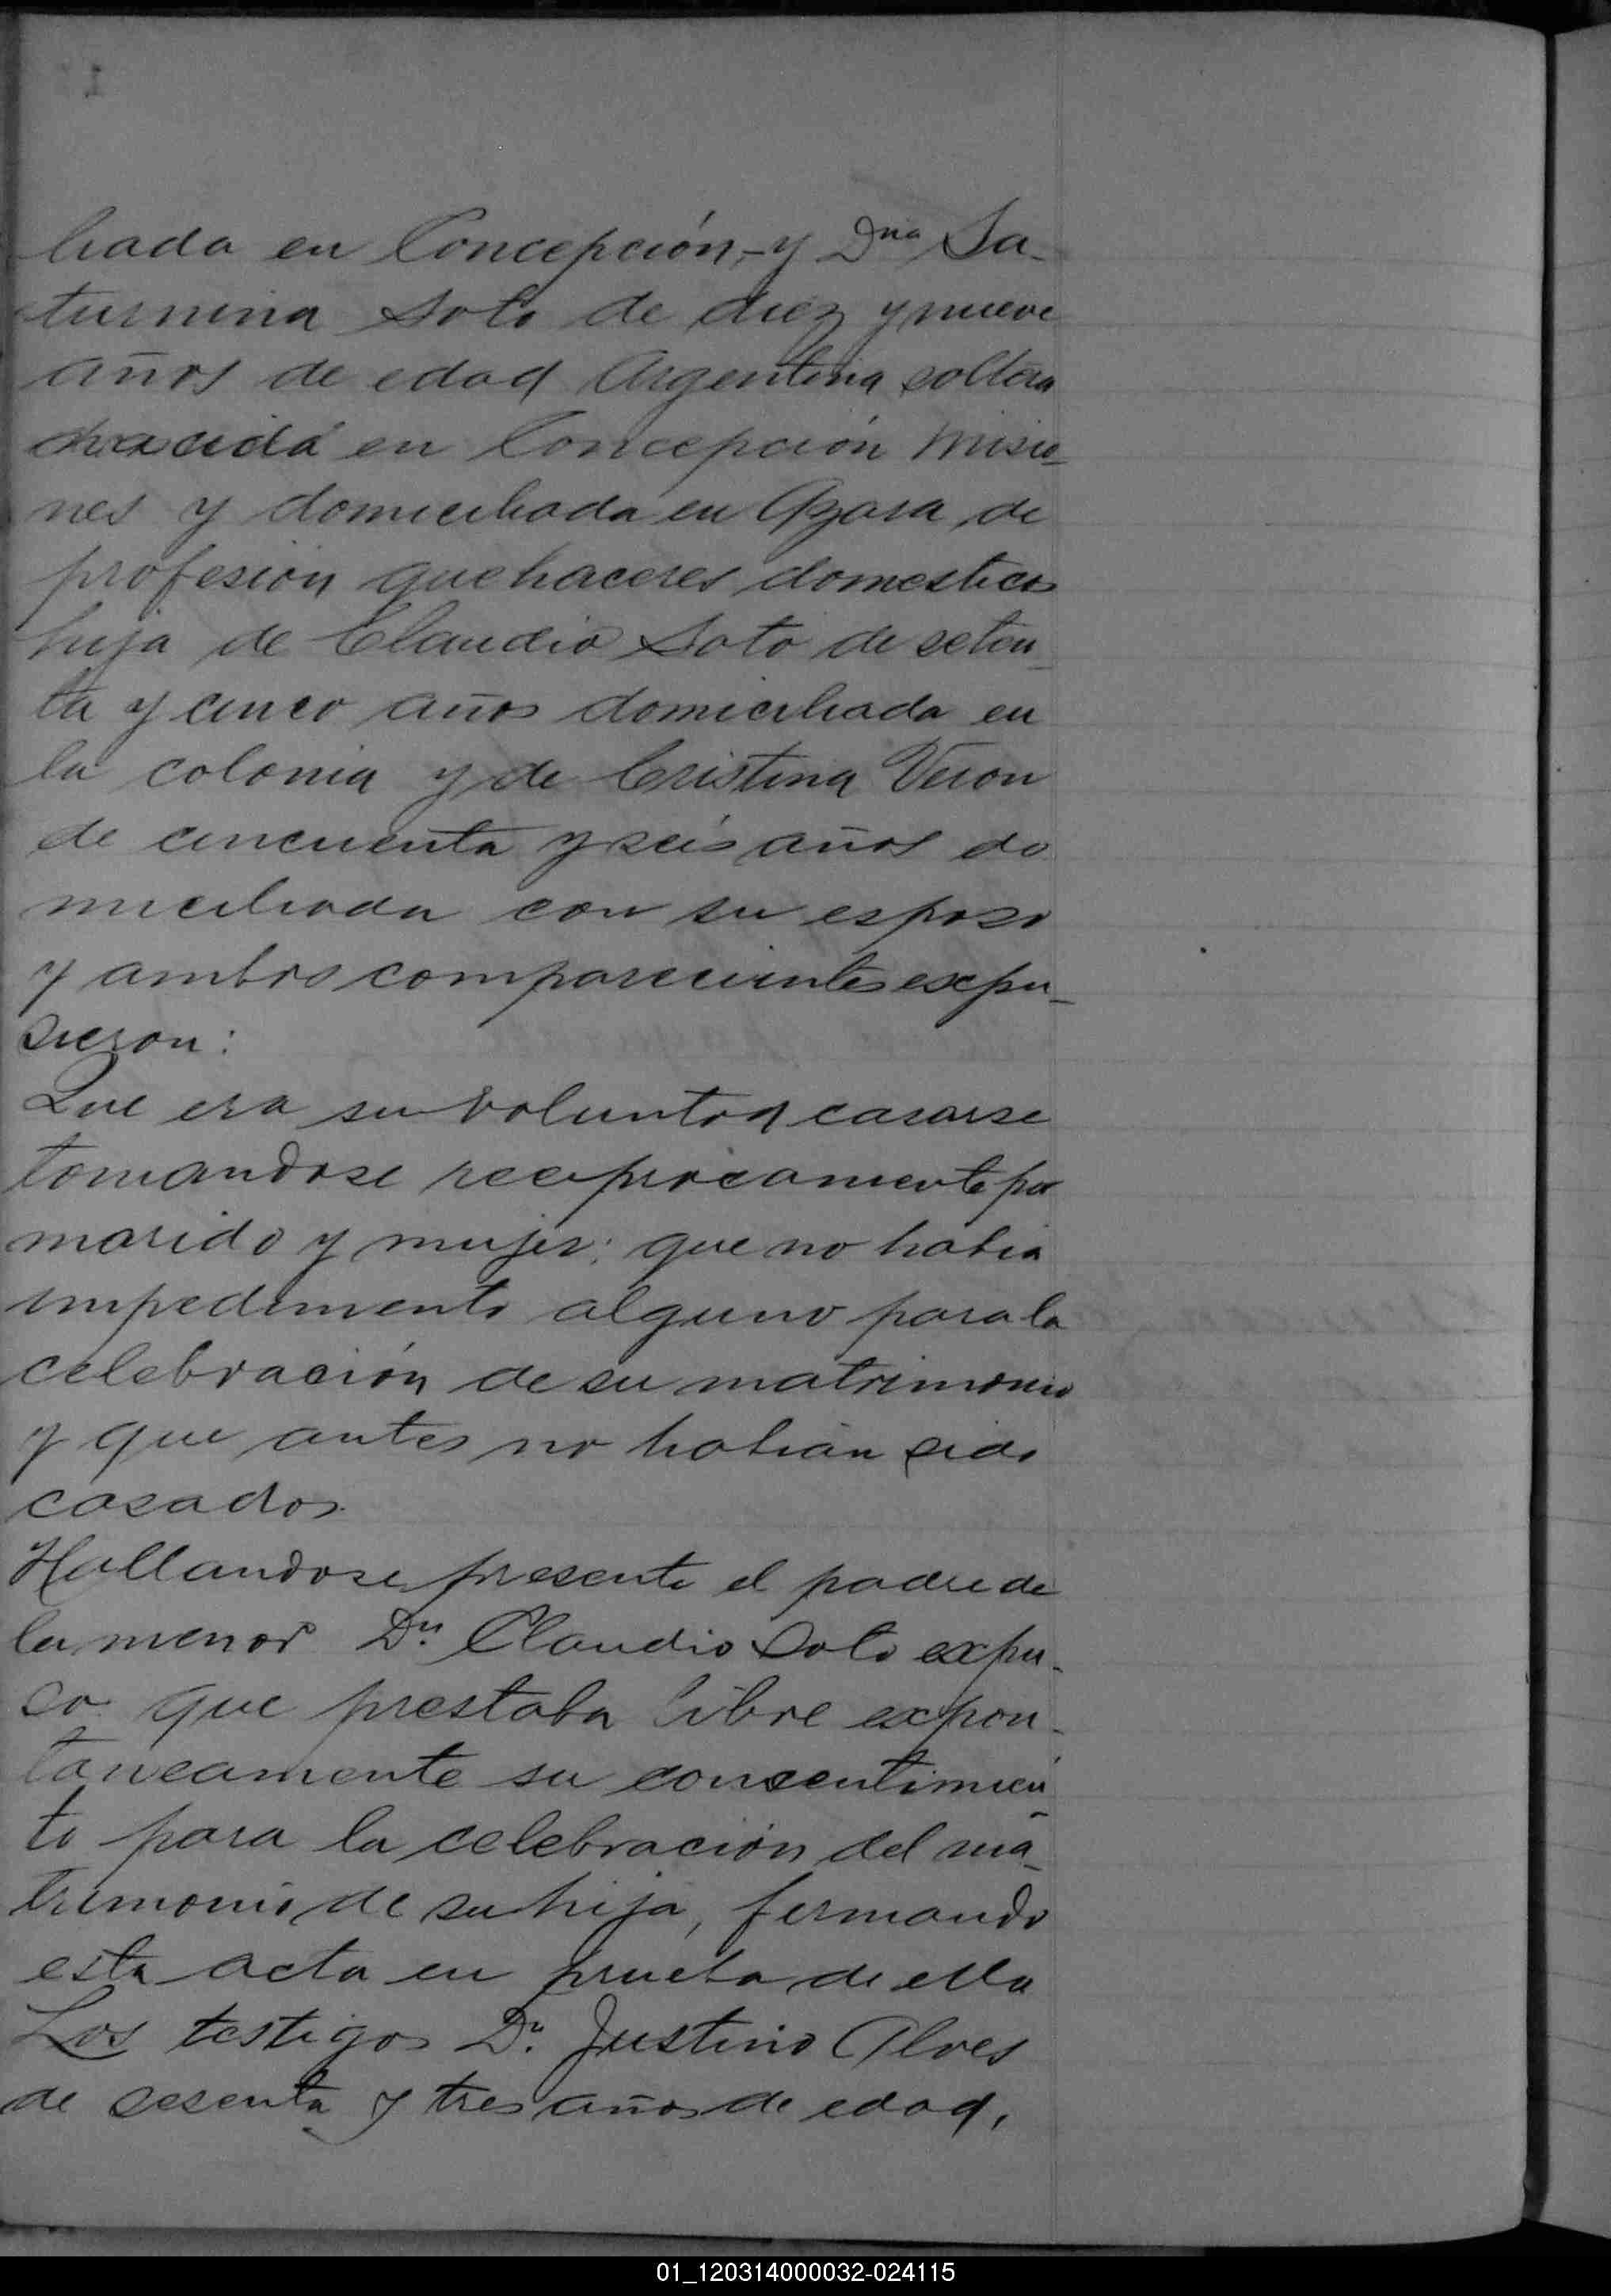 liada en Concepción,-y Dna Sa-
turnina Soto de diez y nueve
años de edad Argentina soltera
nacida en Concepción Misio-
nes y domiciliada en Azara, de
profesión quehaceres domesticos
hija de Claudio Soto de seten-
ta y cinco años domiciliada en
la colonia y de Cristina Veron
de cincuenta y seis años do
miciliada con su esposo
y ambos comparecientes expu-
sieron:
Que era su voluntad casarse
tomandose reciprocamente por
marido y mujer; que no habia
impedimento alguno para la
celebración de su matrimonio
y que antes no habian sido
casados.
Hallandose presente el padre de
la menor Dn. Claudio Soto expu-
so que prestaba libre expon-
taneamente su consentimien-
to para la celebración del ma-
trimonio de su hija, firmando
esta acta en prueba de ella
Los testigos Dn. Justino Alves
de sesenta y tres años de edad,
01_120314000032-024115